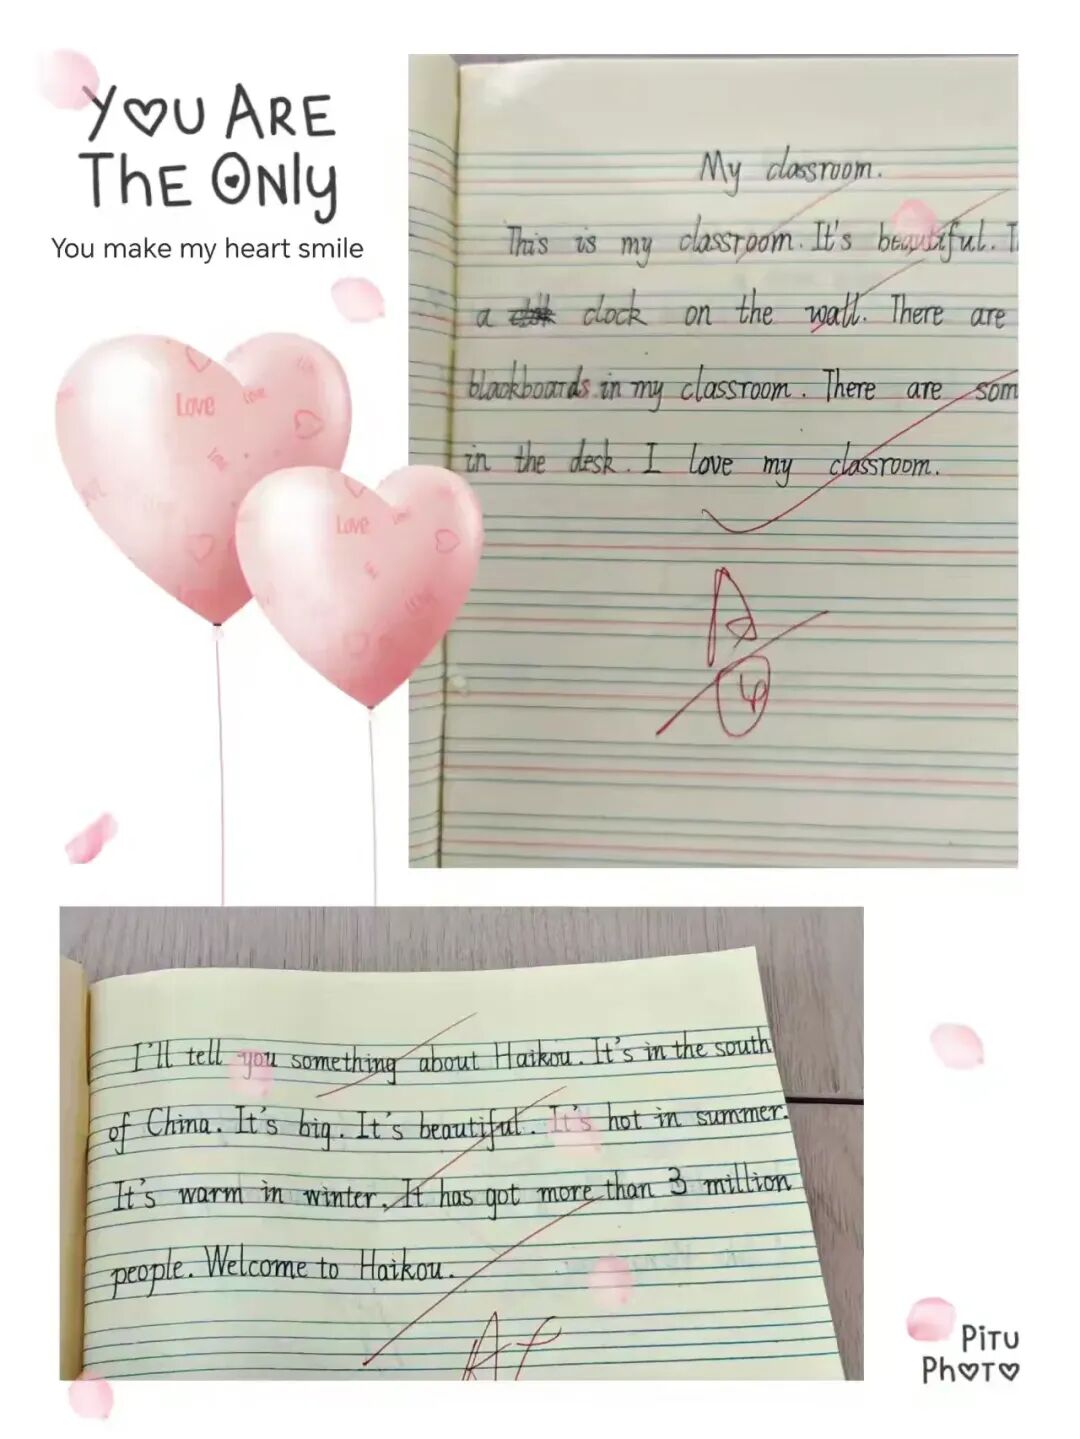 YOU ARE
THE ONLY
You make my heart smile
Love
Love
Love
My classroom.
This is my classroom. It's beautiful. T
a clock on the wall. There are
blackboards in my classroom. There are som
in the desk. I love my classroom.
A
I'll tell you something about Haikou. It's in the south
of China. It's big. It's beautiful. It's hot in summer.
It's warm in winter. It has got more than 3 million
people. Welcome to Haikou.
A+
PITU
PHOTO